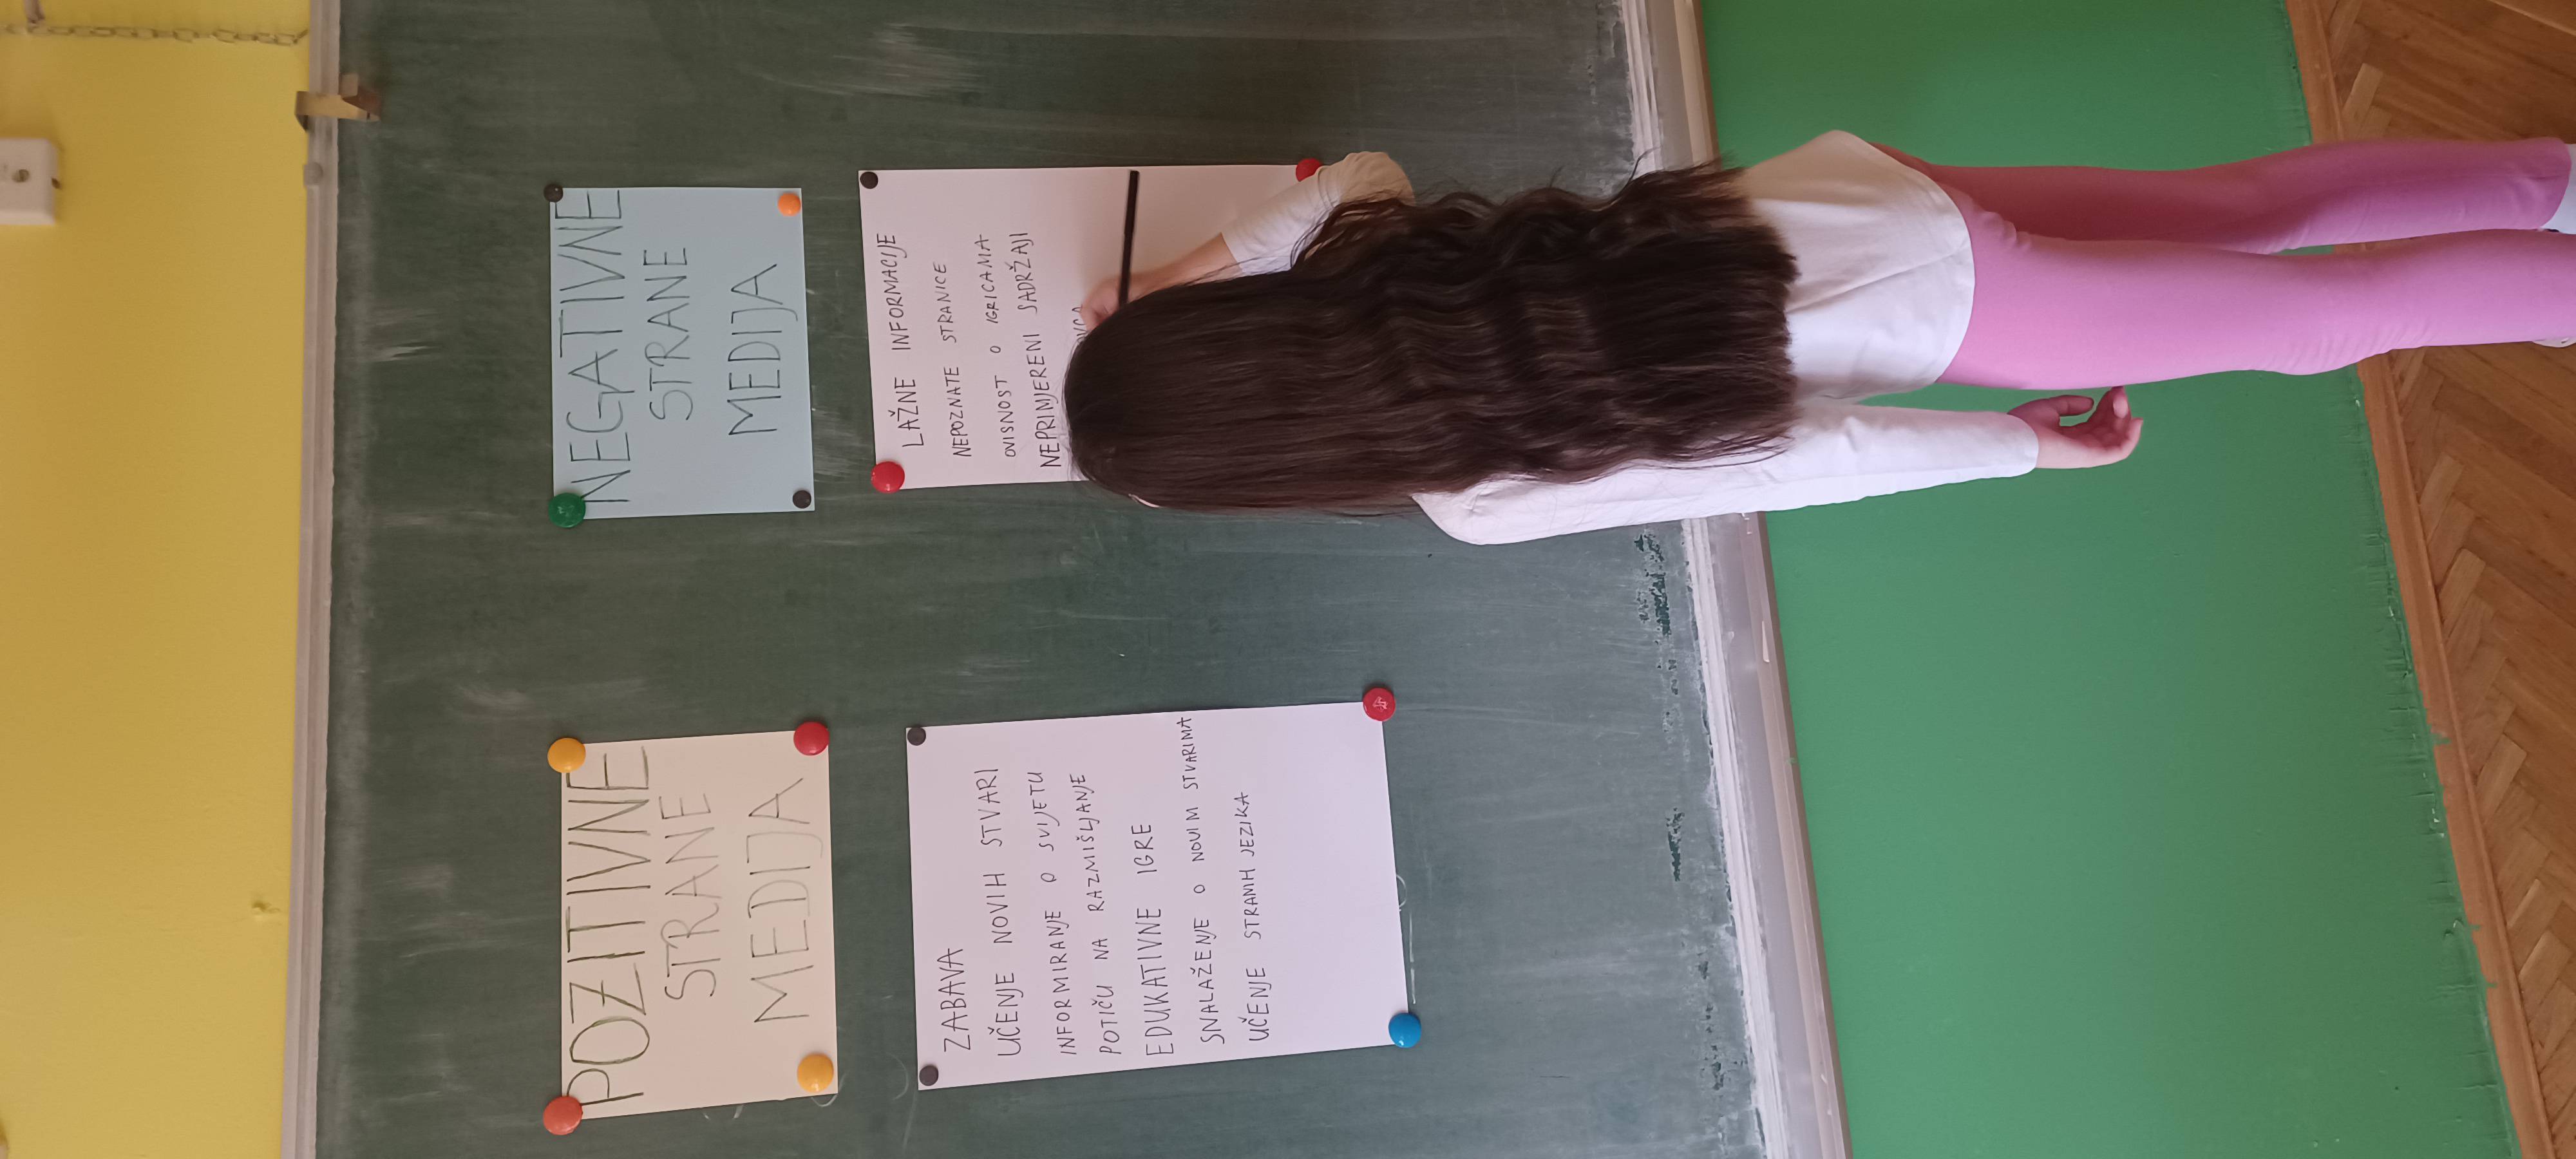 POZITIVNE
STRANE
MEDIJA
ZABAVA
UČENJE NOVIH STVARI
INFORMIRANJE O SVIJETU
POTIČU NA RAZMIŠLJANJE
EDUKATIVNE IGRE
SNALAŽENJE O NOVIM STVARIMA
UČENJE STRANIH JEZIKA
NEGATIVNE
STRANE
MEDIJA
LAŽNE INFORMACIJE
NEPOZNATE STRANICE
OVISNOST O IGRICAMA
NEPRIMJERENI SADRŽAJI